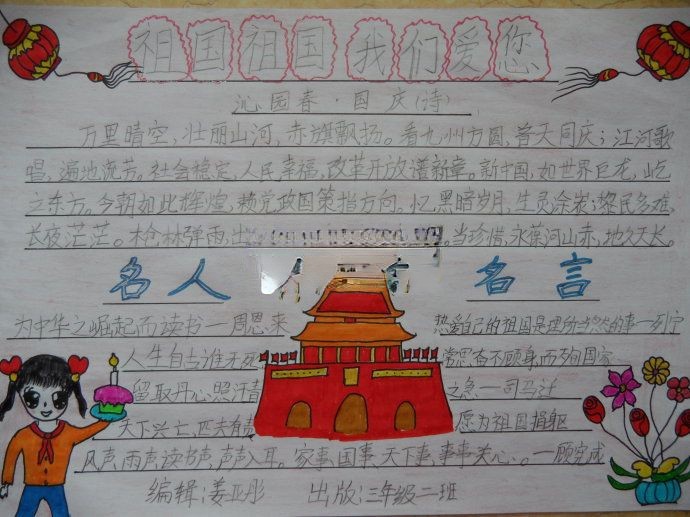 祖国祖国 我们爱您
沁园春·国庆(诗)
万里晴空,壮丽山河,赤旗飘扬。看九州方圆,普天同庆;江河歌
唱,遍地流芳。社会稳定,人民幸福,改革开放谱新章。新中国,如世界巨龙,屹
立东方。今朝如此辉煌,赖党政国策指方向。忆,黑暗岁月,生灵涂炭;黎民多难,
长夜茫茫。枪林弹雨,出 当珍惜,永葆河山赤,地久天长。
名人 名言
为中华之崛起而读书—周恩来 热爱自己的祖国是理所当然的事—列宁
人生自古谁无死 常思奋不顾身,而殉国家
留取丹心照汗青 之急—司马迁
天下兴亡,匹夫有责 愿为祖国捐躯
风声,雨声,读书声,声声入耳。家事,国事,天下事,事事关心。—顾宪成
编辑:姜亚彤 出版:三年级二班